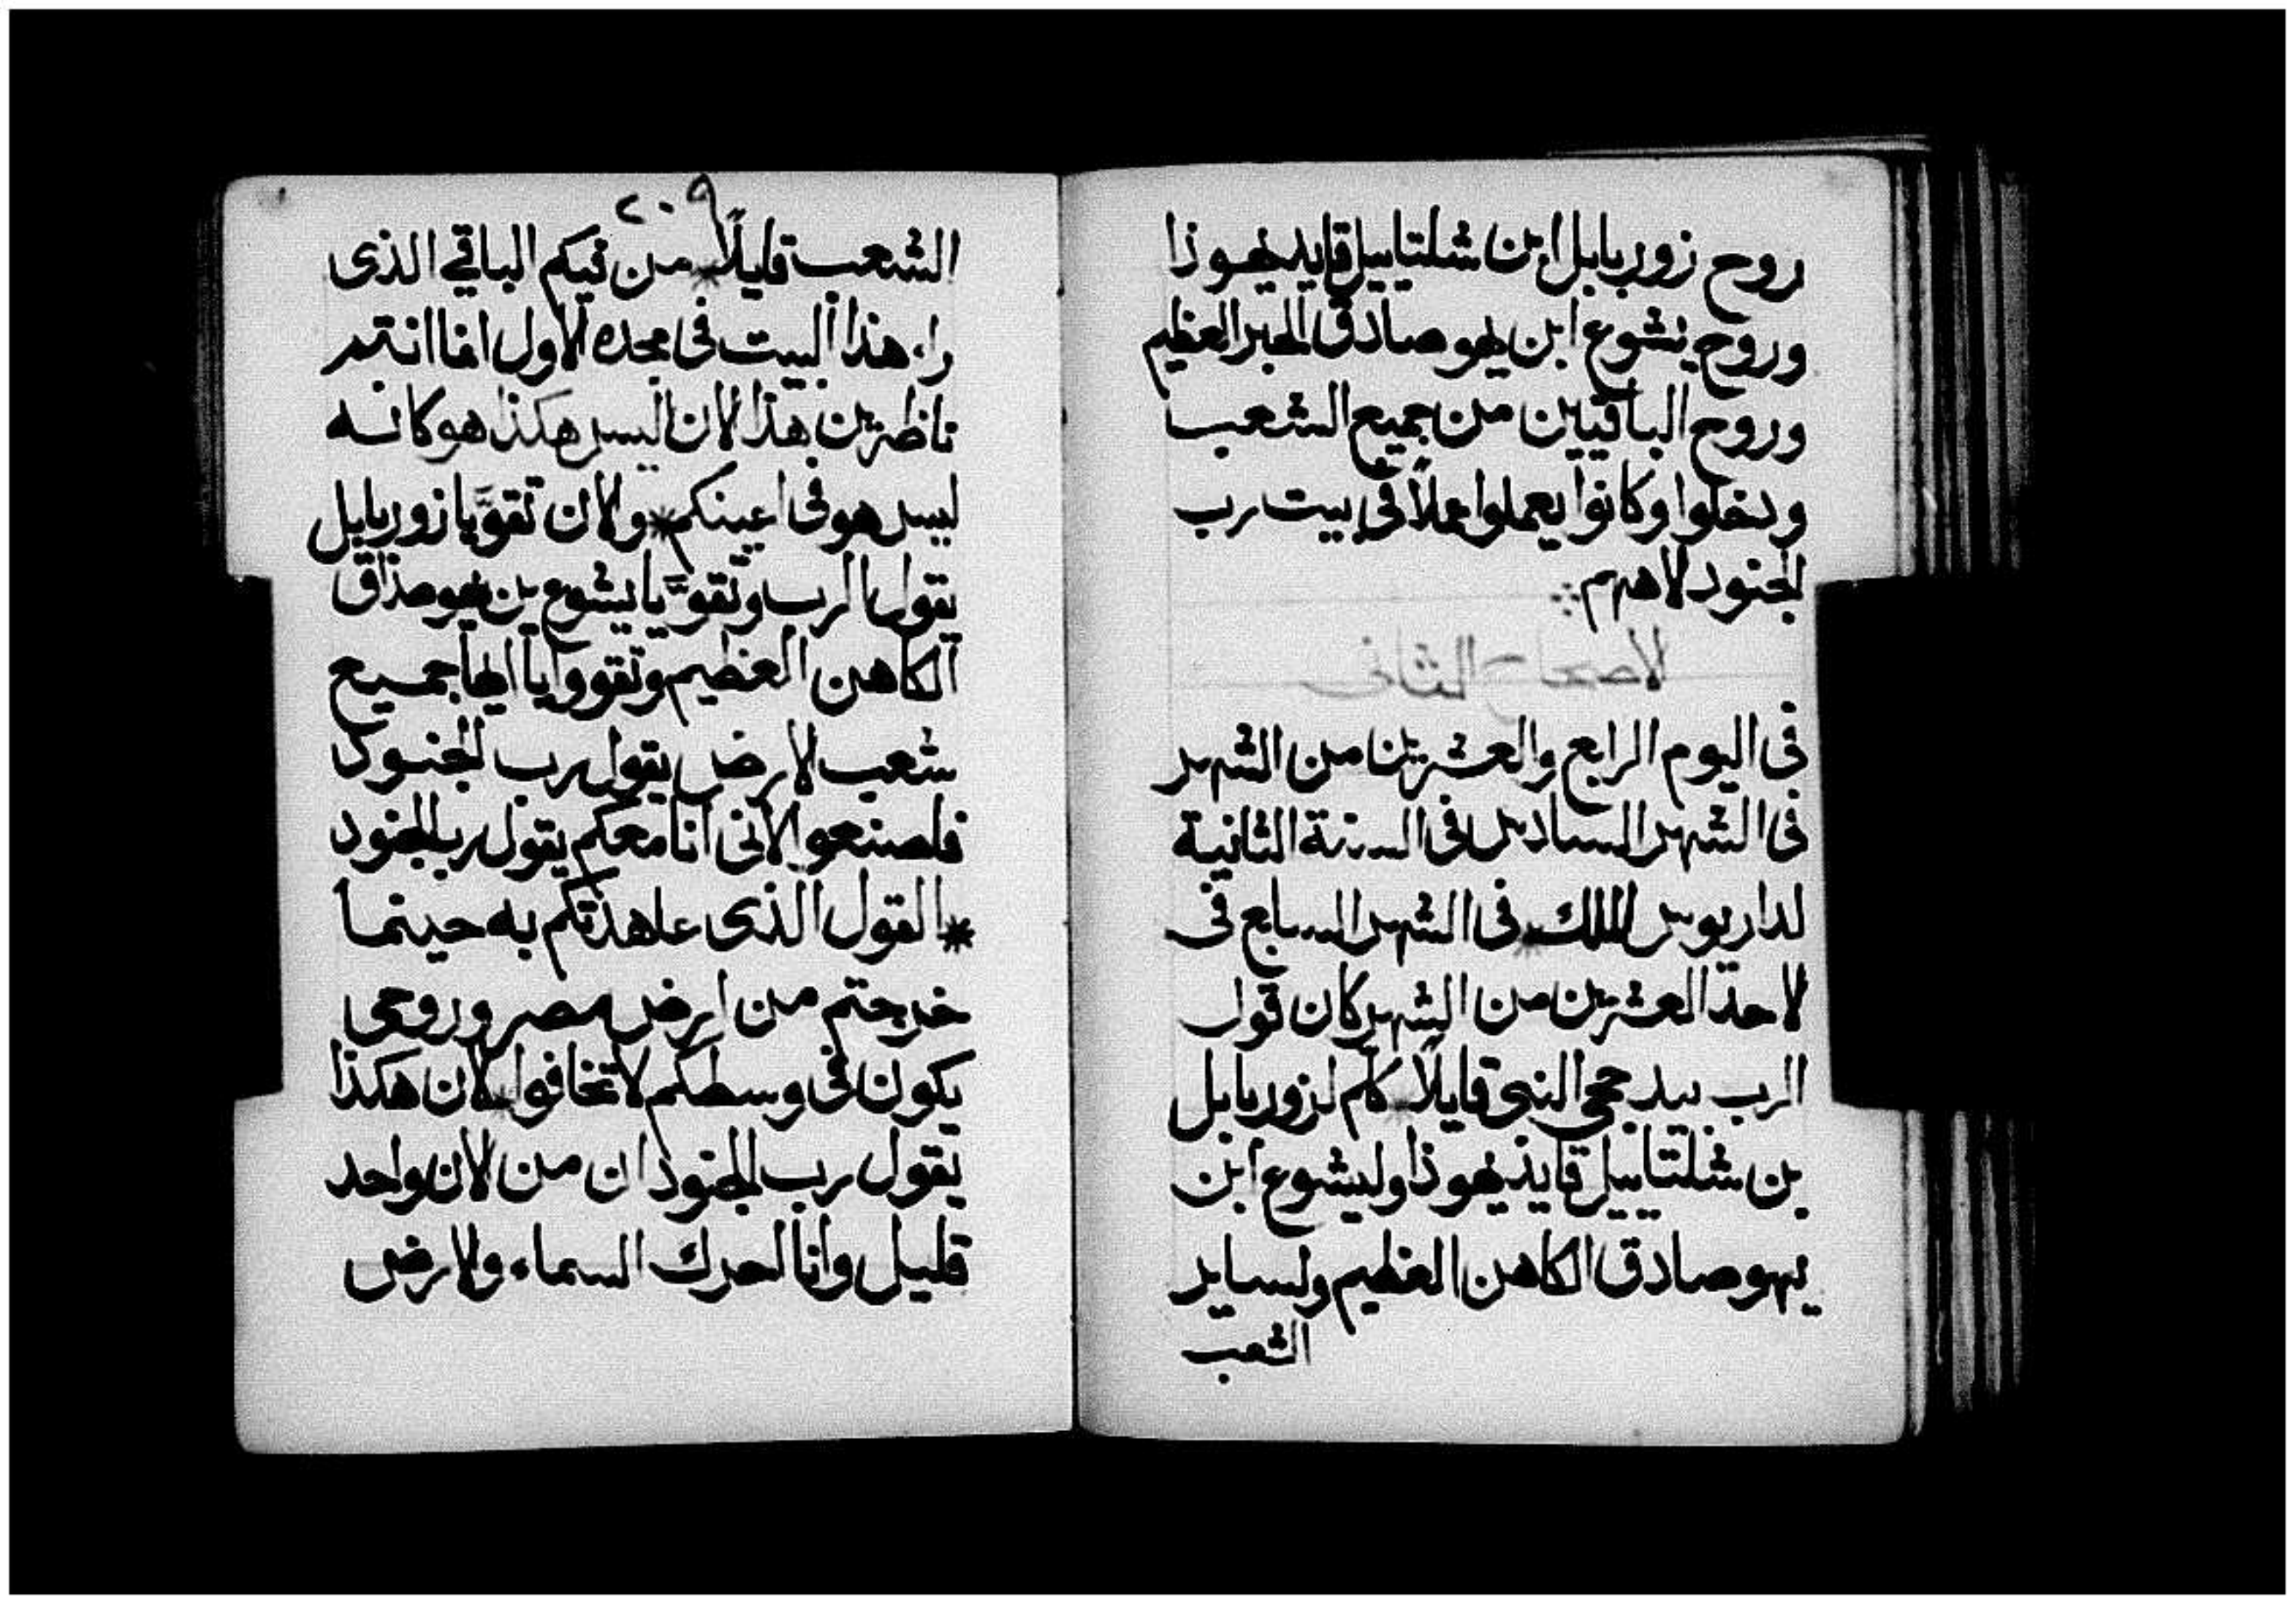 روح زوربابل ابن شلتاييل قايد يهوذا
وروح يشوع ابن يهوصادق الحبر العظيم
وروح الباقيين من جميع الشعب
ودخلوا وكانوا يعملوا عملاً في بيت رب
الجنود لاههم
لاصحاح الثاني
في اليوم الرابع والعشرين من الشهر
في الشهر السادس في السنة الثانية
لداريوس الملك * في الشهر السابع في
لاحد العشرين من الشهر كان قول
الرب بيد حجي النبي قايلاً * كلم لزوربابل
بن شلتاييل قايد يهوذا وليشوع ابن
يهوصادق الكاهن العظيم ولساير
الشعب
٢٠٩
الشعب قايلاً * من فيكم الباقي الذى
راء هذا البيت في مجده الاول اما انتم
ناظرين هذا لان ليس هكذا هو كانه
ليس هو في اعينكم * ولان تقوَّ يا زوربابل
يقول الرب وتقوَّ يا يشوع بن يهوصذاق
الكاهن العظيم وتقووا يا ايها جميع
شعب لارض يقول رب الجنود
فاصنعوا لاني انا معكم يقول رب الجنود
* القول الذى عاهذتكم به حينما
خرجتم من ارض مصر وروحى
يكون في وسطكم لا تخافوا * لان هكذا
يقول رب الجنود ان من لان واحد
قليل وانا احرك السماء ولارض